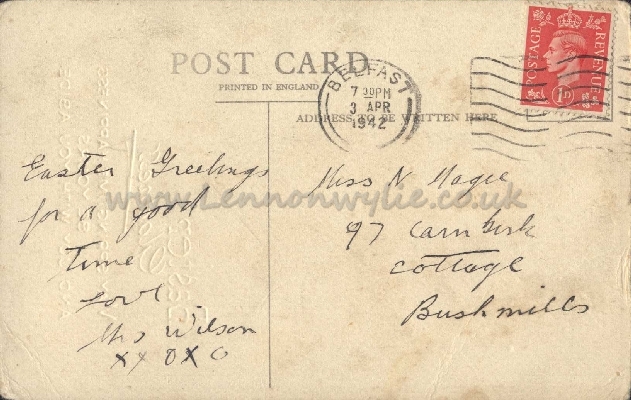 POST CARD
PRINTED IN ENGLAND
ADDRESS TO BE WRITTEN HERE
BELFAST
7 30PM
3 APR
1942
POSTAGE
REVENUE
1D
www.Lennonwylie.co.uk
Easter Greetings
for a good
time
Love
Mrs Wilson
XXOXO
Miss N Magee
97 Carnkirk
Cottage
Bushmills